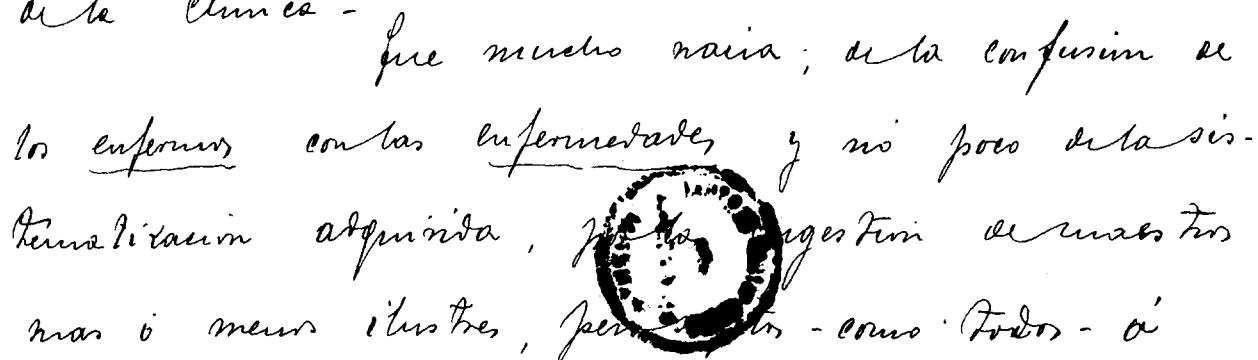 de la Clínica -
que mucho nacia; de la confusion de
los enfermos con las enfermedades y nó poco de la sis-
tematizacion adquirida, por la sugestion de maestros
mas ó menos ilustres, pero - como todos - á